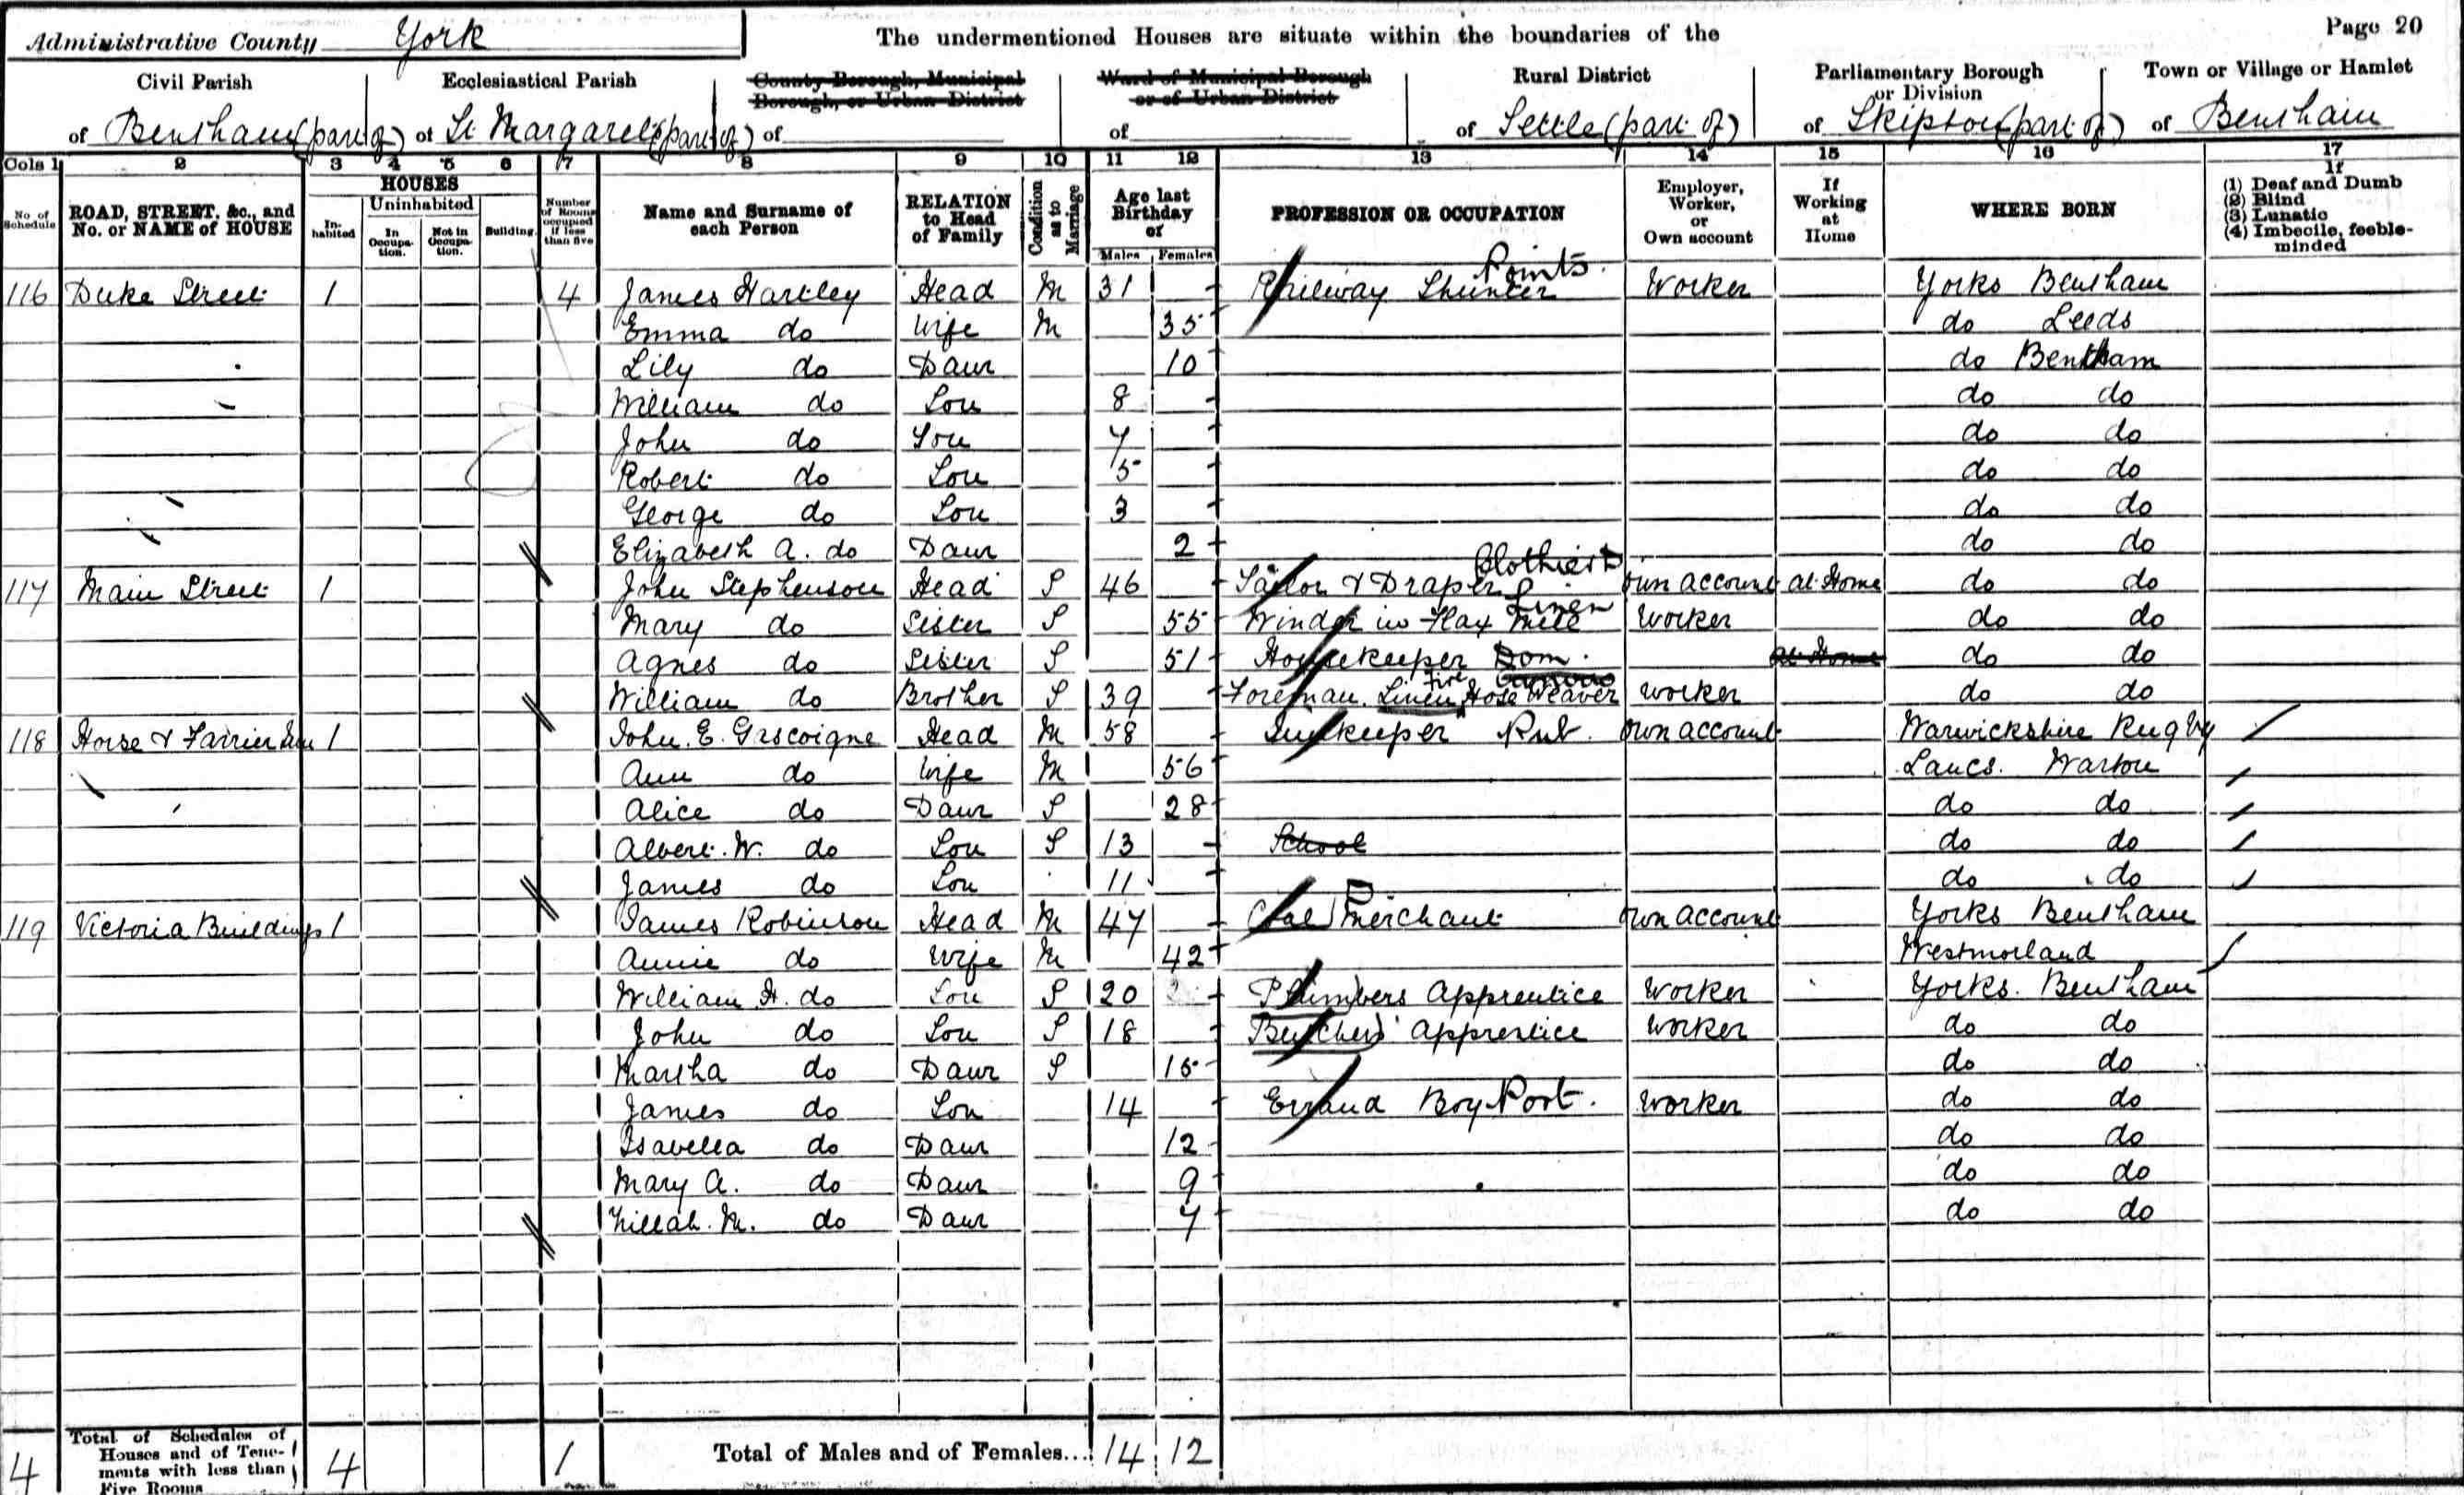 Administrative County York
The undermentioned Houses are situate within the boundaries of the
Page 20
Civil Parish
Ecclesiastical Parish
County Borough, Municipal Borough, or Urban District
Ward of Municipal Borough or of Urban District
Rural District
Parliamentary Borough or Division
Town or Village or Hamlet
of Bentham (part of) of St Margarets (part of) of of of Settle (part of) of Skipton (part of) of Bentham
Cols 1 2 3 4 5 6 7 8 9 10 11 12 13 14 15 16 17
No of Schedule
ROAD, STREET, &c., and No. or NAME of HOUSE
HOUSES
Inhabited
Uninhabited
In Occupation.
Not in Occupation.
Building.
Number of Rooms occupied if less than five
Name and Surname of each Person
RELATION to Head of Family
Condition as to Marriage
Age last Birthday of
Males Females
PROFESSION OR OCCUPATION
Employer, Worker, or Own account
If Working at Home
WHERE BORN
If
(1) Deaf and Dumb
(2) Blind
(3) Lunatic
(4) Imbecile, feeble-minded
116 Duke Street 1 4 James Hartley Head M 31 Railway Shunter Points. Worker Yorks Bentham
Emma do Wife M 35 do Leeds
Lily do Daur 10 do Bentham
William do Son 8 do do
John do Son 7 do do
Robert do Son 5 do do
George do Son 3 do do
Elizabeth A. do Daur 2 do do
117 Main Street 1 John Stephenson Head S 46 Tailor & Draper Clothier own account at Home do do
Mary do Sister S 55 Winder in Flax Mill Linen Worker do do
Agnes do Sister S 51 Housekeeper Dom. at Home do do
William do Brother S 39 Foreman. Linen Fire Hose Weaver worker do do
118 Horse & Farrier Inn 1 John. E. Gascoigne Head M 58 Innkeeper Pub. own account Warwickshire Rugby
Ann do Wife M 56 Lancs. Warton
Alice do Daur S 28 do do
Albert. W. do Son S 13 School do do
James do Son 11 do do
119 Victoria Buildings 1 James Robinson Head M 47 Coal Merchant own account Yorks Bentham
Annie do Wife M 42 Westmorland
William H. do Son S 20 Plumbers Apprentice Worker Yorks. Bentham
John do Son S 18 Butchers' Apprentice Worker do do
Martha do Daur S 15 do do
James do Son 14 Errand Boy Port. Worker do do
Isabella do Daur 12 do do
Mary A. do Daur 9 do do
Zillah. M. do Daur 7 do do
4 Total of Schedules of Houses and of Tenements with less than Five Rooms 4 1 Total of Males and of Females... 14 12